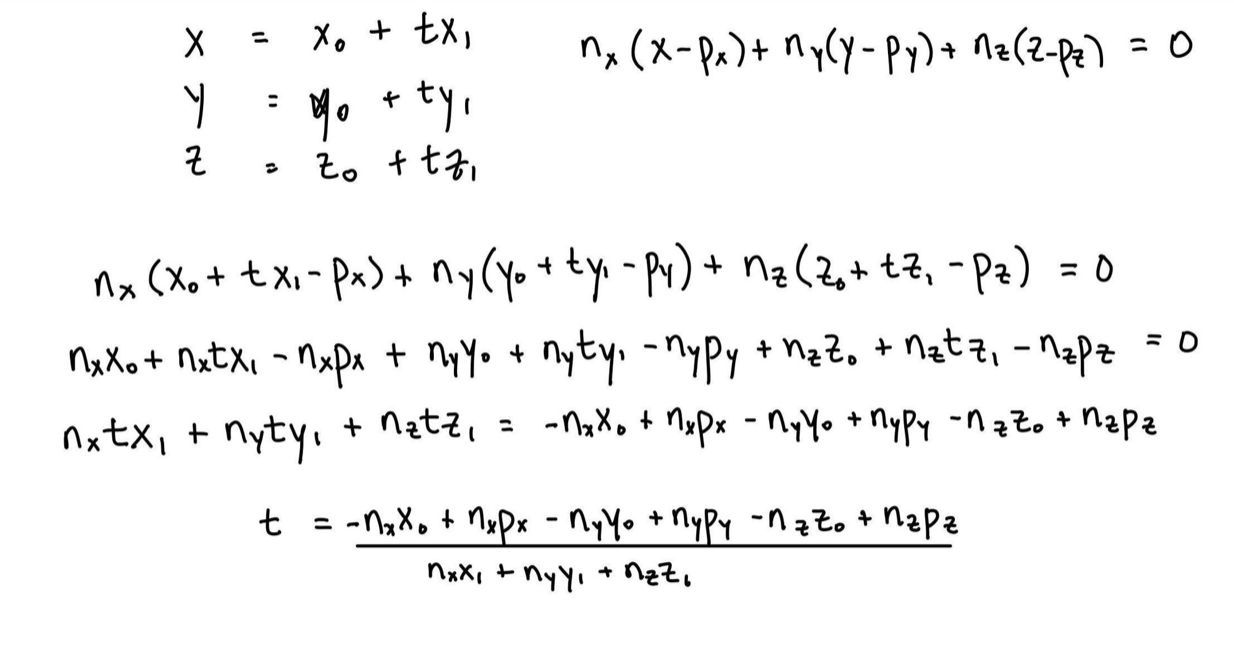 x = x₀ + tx₁
nₓ(x-pₓ)+ n_y(y-p_y)+ n_z(z-p_z) = 0
y = y₀ + ty₁
z = z₀ + tz₁
nₓ(x₀+ tx₁-pₓ)+ n_y(y₀+ty₁-p_y)+ n_z(z₀+tz₁-p_z) = 0
nₓx₀+ nₓtx₁ -nₓpₓ + n_yy₀ + n_yty₁ -n_yp_y + n_zz₀ + n_ztz₁ -n_zp_z = 0
nₓtx₁ + n_yty₁ + n_ztz₁ = -nₓx₀ + nₓpₓ - n_yy₀ +n_yp_y -n_zz₀ + n_zp_z
t = -nₓx₀ + nₓpₓ - n_yy₀ +n_yp_y -n_zz₀ + n_zp_z
nₓx₁ + n_yy₁ + n_zz₁